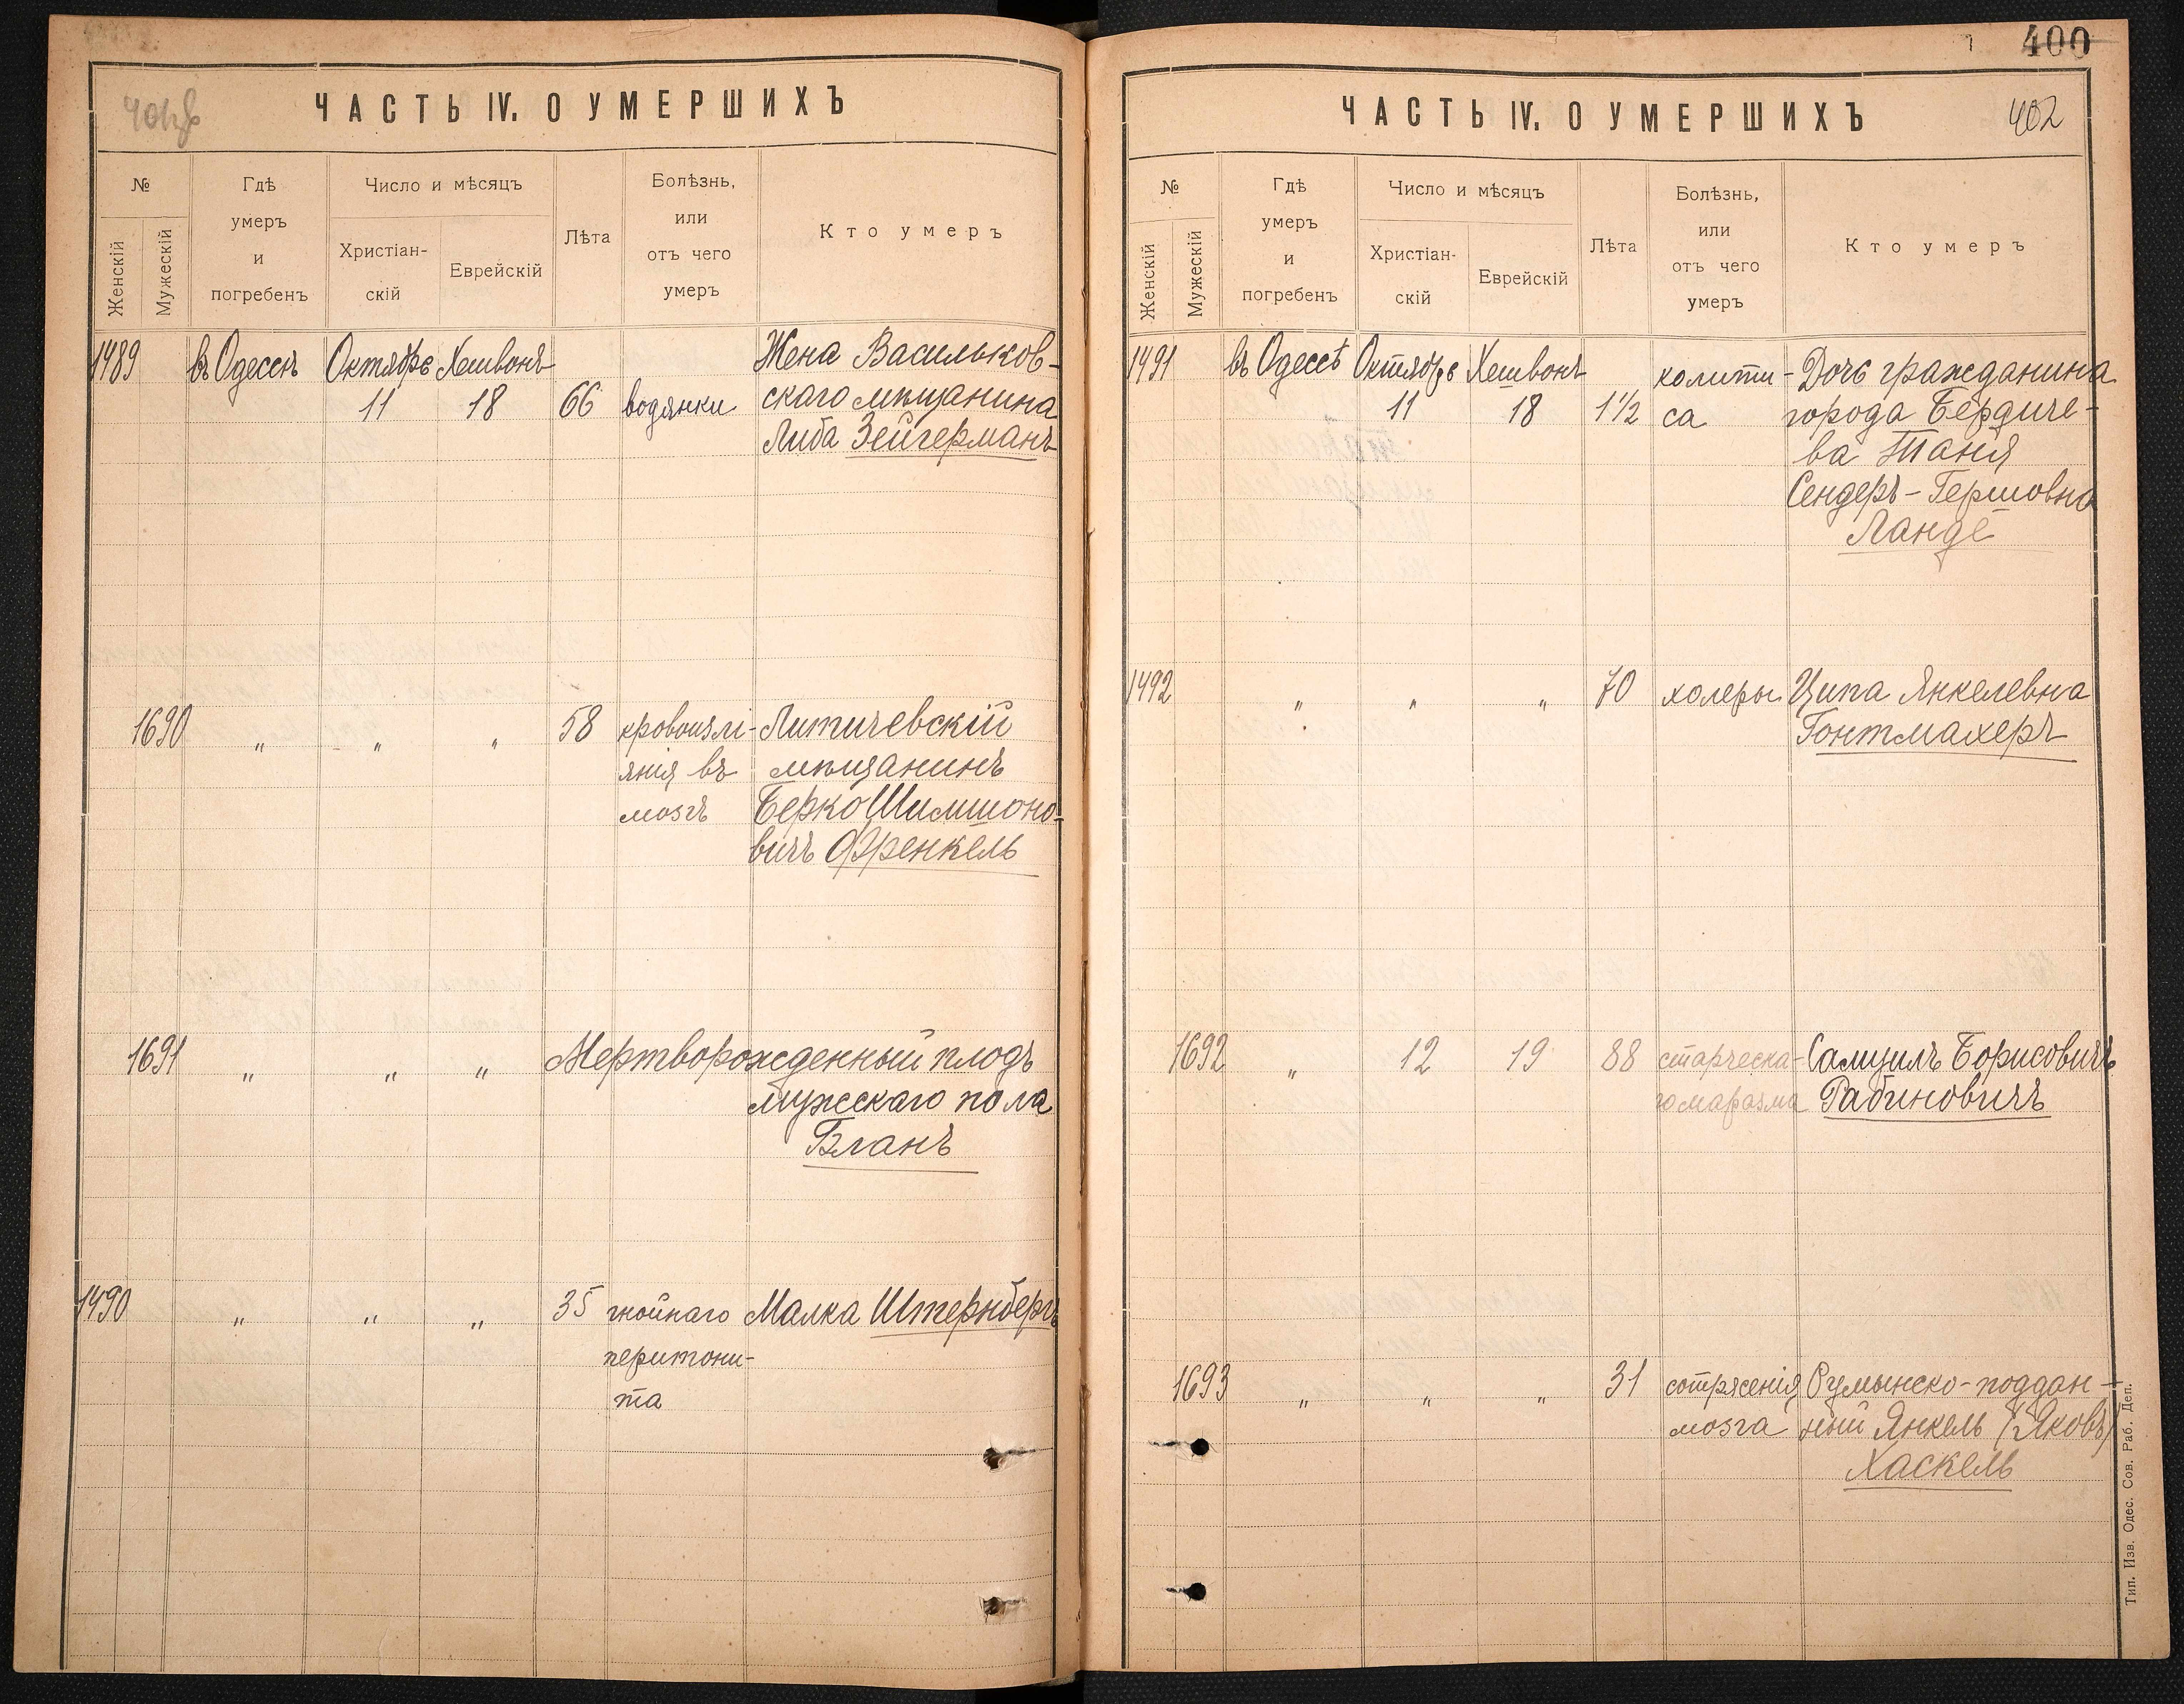 ЧАСТЬ IV. О УМЕРШИХЪ
№
Женскій
Мужескій
Гдѣ
умеръ
и
погребенъ
Число и мѣсяцъ
Христіан-
скій
Еврейскій
Лѣта
Болѣзнь,
или
отъ чего
умеръ
Кто умеръ
1489 въ Одессѣ Октябрь Хешвонъ Жена Васильков-
11 18 66 водянки скаго мѣщанина
Либа Зейгерманъ
1690 " " " 58 кровоизлі- Литичевскій
янія въ мѣщанинъ
мозгъ Берко Шимшоно-
вичъ Френкель
1691 " " " Мертворожденный плодъ
мужскаго пола
Бланъ
1490 " " " 35 гнойнаго Малка Штернбергъ
перитони-
та
400
ЧАСТЬ IV. О УМЕРШИХЪ 402
№
Женскій
Мужескій
Гдѣ
умеръ
и
погребенъ
Число и мѣсяцъ
Христіан-
скій
Еврейскій
Лѣта
Болѣзнь,
или
отъ чего
умеръ
Кто умеръ
1491 въ Одессѣ Октябрь Хешвонъ колити- Дочь гражданина
11 18 1 1/2 са города Бердиче-
ва Таня
Сендеръ-Гершовна
Ланде
1492 " " " 70 холеры Ципа Янкелевна
Гонтмахеръ
1692 " 12 19 88 старческа- Самуилъ Борисовичъ
го маразма Рабиновичъ
1693 " " " 31 сотрясенія Румынско-поддан-
мозга ный Янкель (Яковъ)
Хаскель
Тип. Изв. Одес. Сов. Раб. Деп.